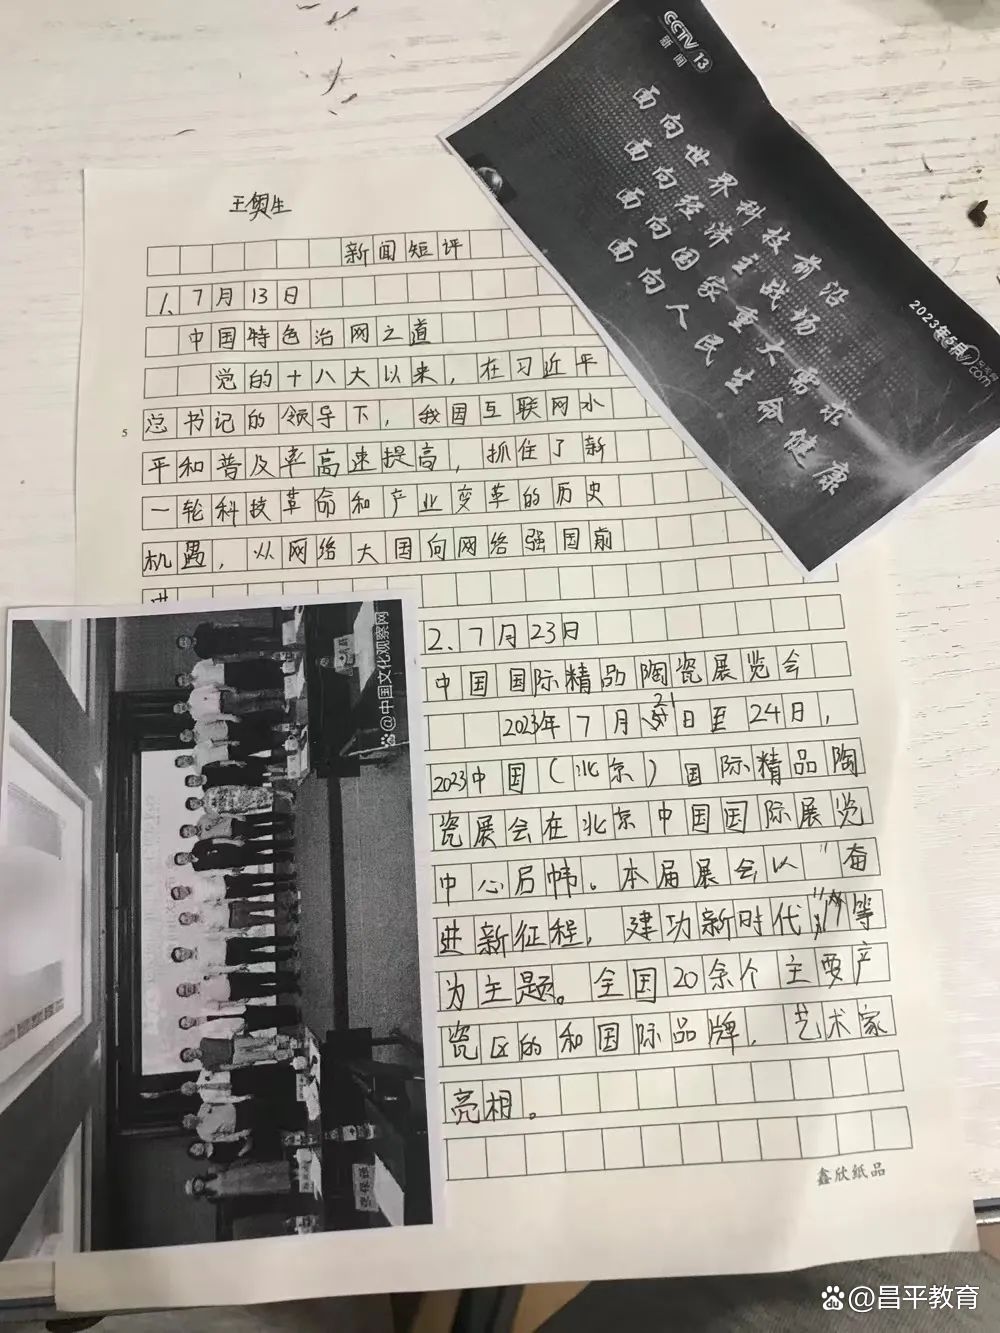 王奥生
新闻短评
1、7月13日
中国特色治网之道
党的十八大以来，在习近平
总书记的领导下，我国互联网水
平和普及率高速提高，抓住了新
一轮科技革命和产业变革的历史
机遇，从网络大国向网络强国前
进
2、7月23日
中国国际精品陶瓷展览会
2023年7月21日至24日，
2023中国（北京）国际精品陶
瓷展会在北京中国国际展览
中心启帏。本届展会以“奋
进新征程，建功新时代”等
为主题。全国20余个主要产
瓷区的和国际品牌，艺术家
亮相。
鑫欣纸品
5
CCTV 13
新闻
面向世界科技前沿
面向经济主战场
面向国家重大需求
面向人民生命健康
2023年5月
@中国文化观察网
@昌平教育